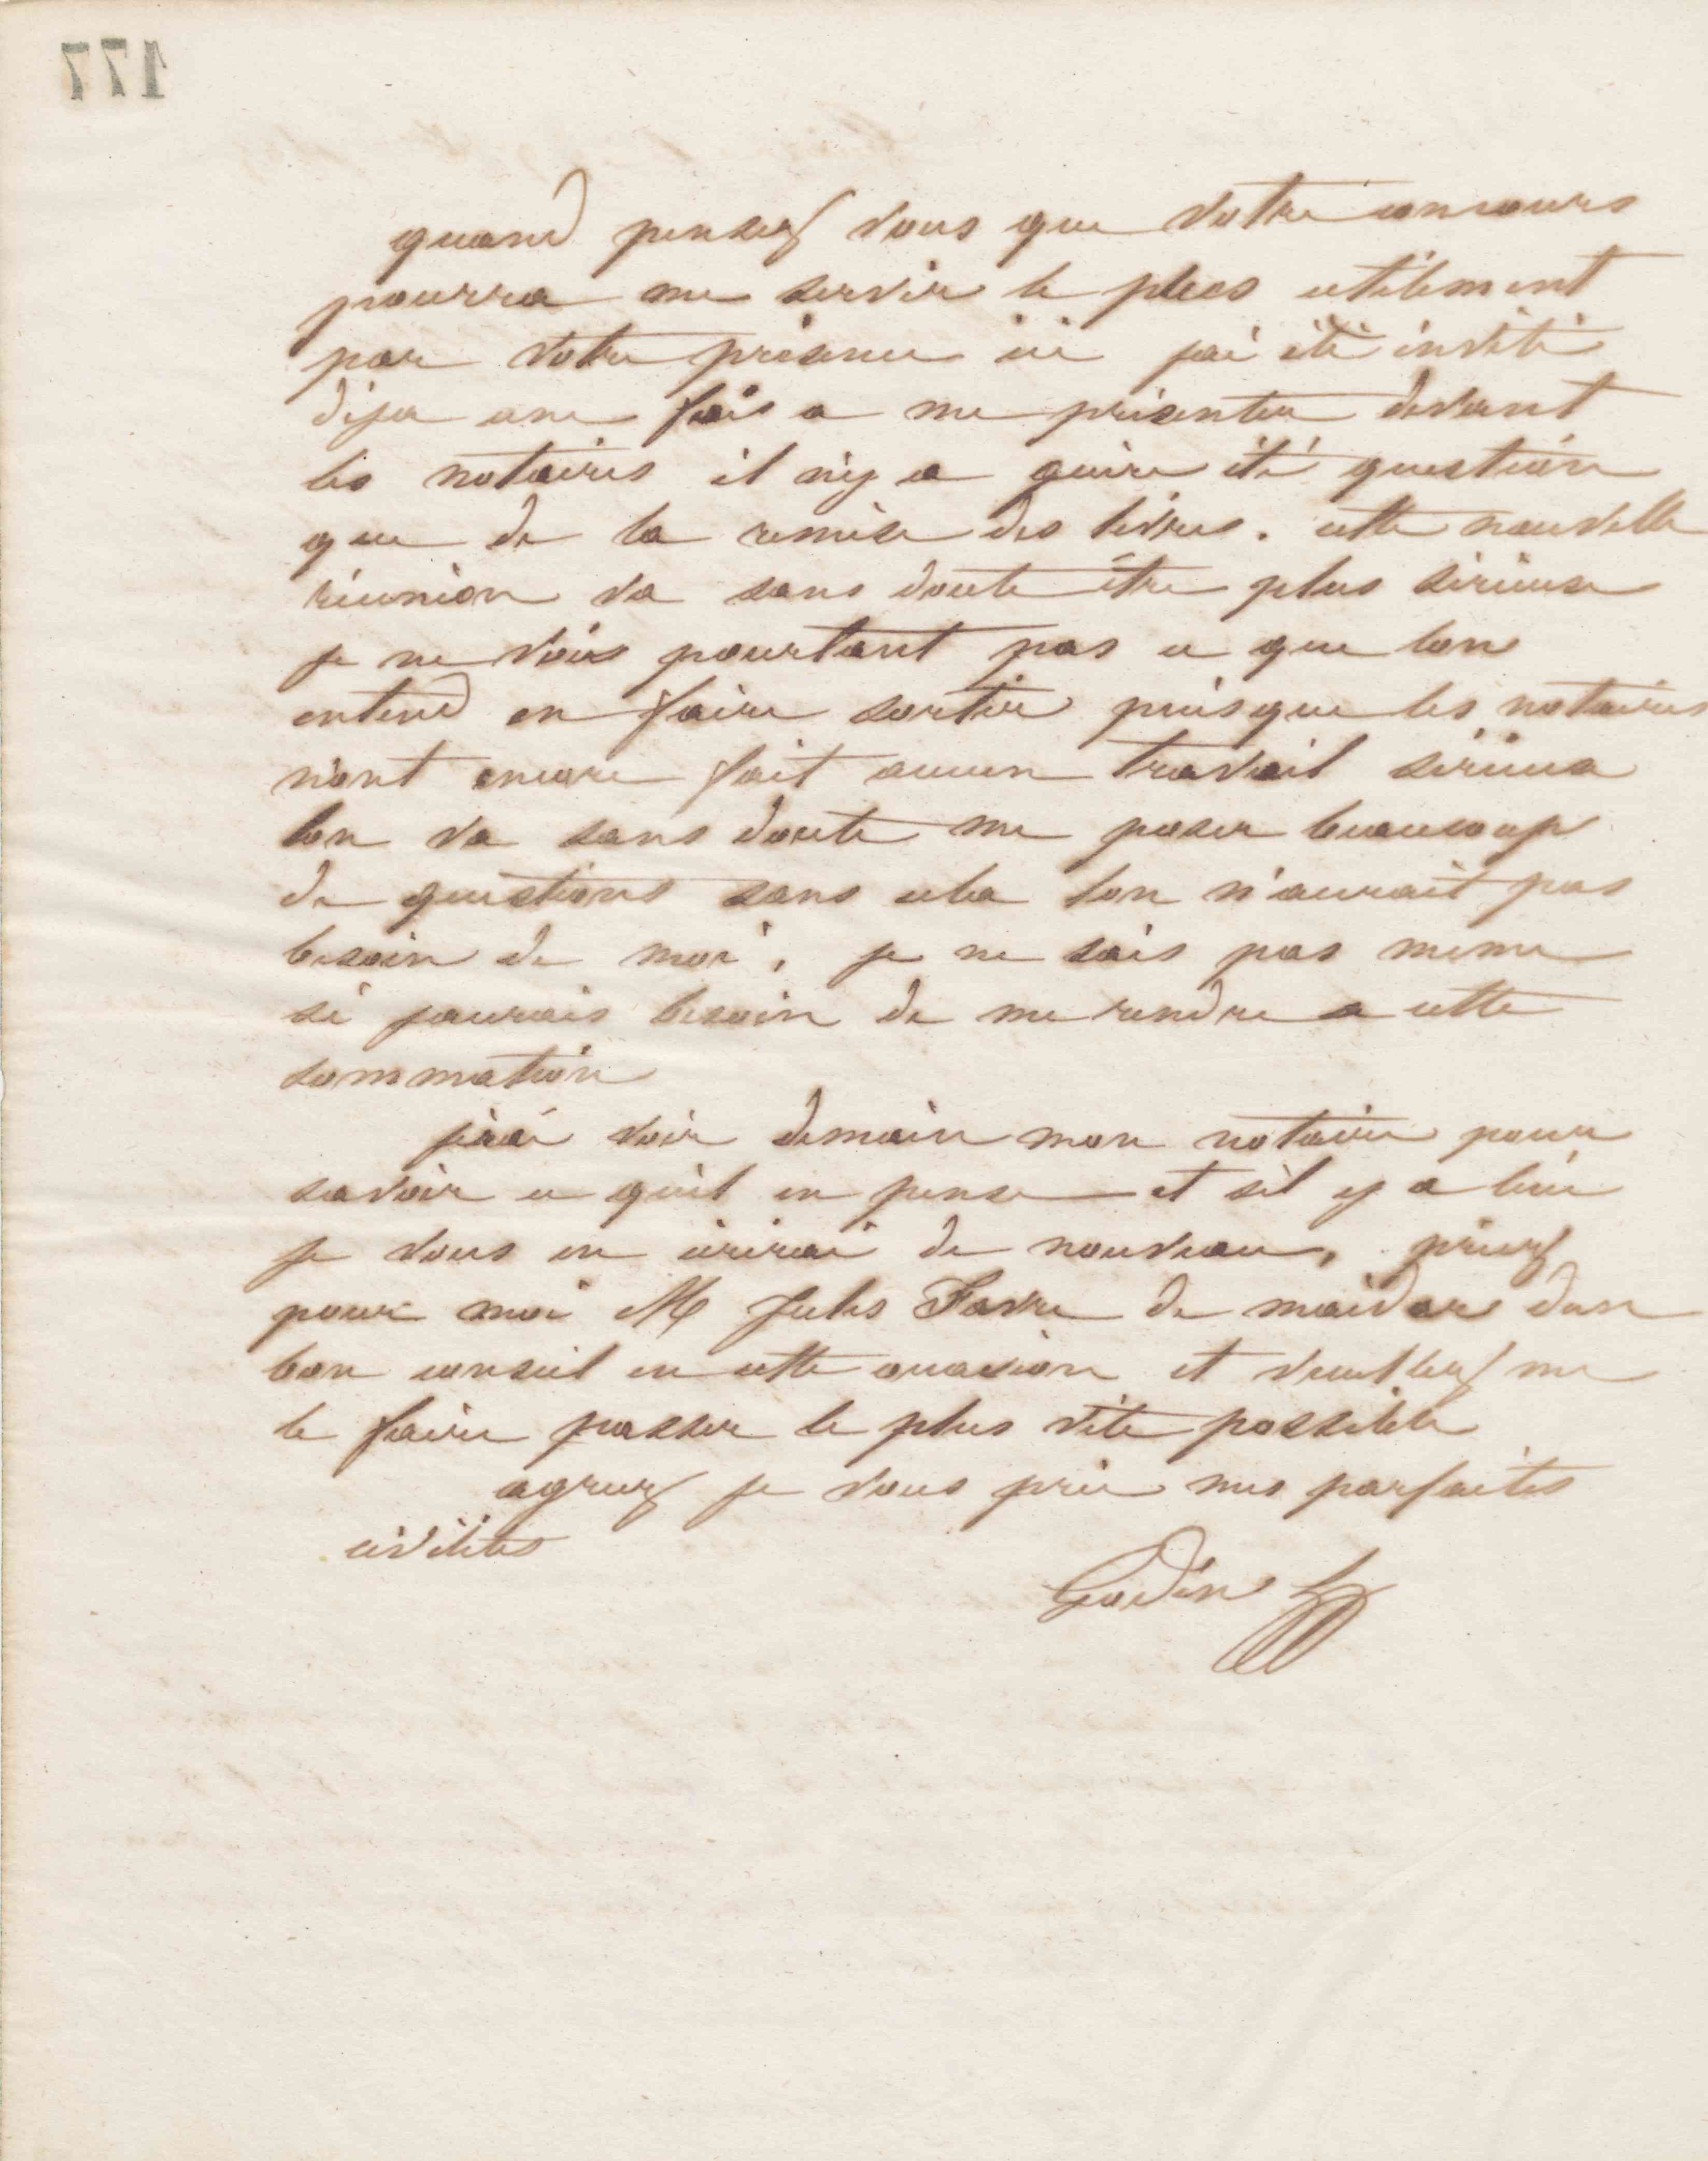 177
quand pensez vous que votre concours
pourra me servir le plus utilement
par votre présence ici jai été invité
déja une fois a me présenter devant
les notaires il n'y a guère été question
que de la remise des livres. cette nouvelle
réunion va sans doute être plus sérieuse
je ne vois pourtant pas ce que lon
entend en faire sortir puisque les notaires
n'ont encore fait aucun travail sérieux
lon va sans doute me poser beaucoup
de questions sans cela lon n'aurait pas
besoin de moi, je ne sais pas meme
si jaurais besoin de me rendre a cette
sommation
jirai voir demain mon notaire pour
savoir ce qu'il en pense et sil y a lieu
je vous en écrirai de nouveau, priez
pour moi M Jules Favre de maider dun
bon conseil en cette occasion et veuillez me
le faire passer le plus vite possible
agreez je vous prie mes parfaites
civilités
Godin